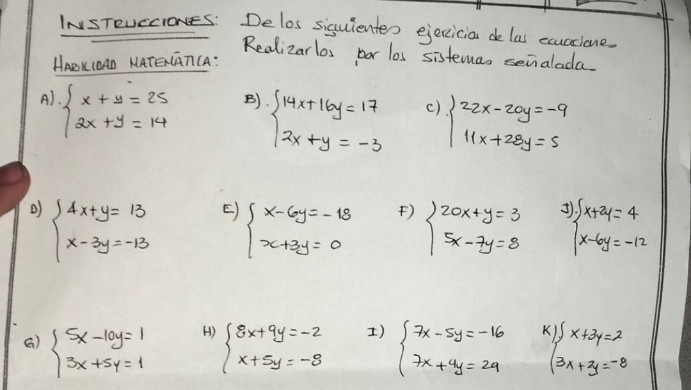 INSTRUCCIONES: De los siguientes ejercicios de las ecuaciones
Realizarlos por los sistemas señalada
HABILIDAD MATEMÁTICA:
A). { x + y = 25
2x + y = 14
B). { 14x + 16y = 17
2x + y = -3
C). { 22x - 20y = -9
11x + 28y = 5
D) { 4x + y = 13
x - 3y = -13
E) { x - 6y = -18
x + 3y = 0
F) { 20x + y = 3
5x - 7y = 8
J). { x + 2y = 4
x - 6y = -12
G) { 5x - 10y = 1
3x + 5y = 1
H) { 8x + 9y = -2
x + 5y = -8
I) { 7x - 5y = -16
7x + 4y = 29
K) { x + 3y = 2
3x + 2y = -8